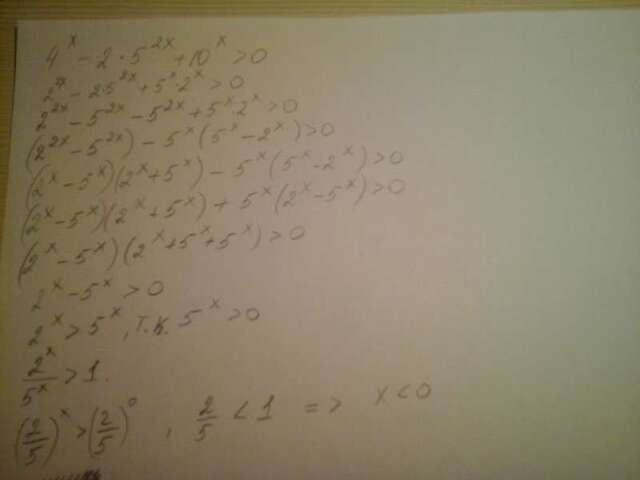 4^x - 2·5^{2x} + 10^x > 0
2^{2x} - 2·5^{2x} + 5^x·2^x > 0
2^{2x} - 5^{2x} - 5^{2x} + 5^x·2^x > 0
(2^{2x} - 5^{2x}) - 5^x(5^x - 2^x) > 0
(2^x - 5^x)(2^x + 5^x) - 5^x(5^x - 2^x) > 0
(2^x - 5^x)(2^x + 5^x) + 5^x(2^x - 5^x) > 0
(2^x - 5^x)(2^x + 5^x + 5^x) > 0
2^x - 5^x > 0
2^x > 5^x, т.к. 5^x > 0
2^x/5^x > 1.
(2/5)^x > (2/5)^0, 2/5 < 1 => x < 0